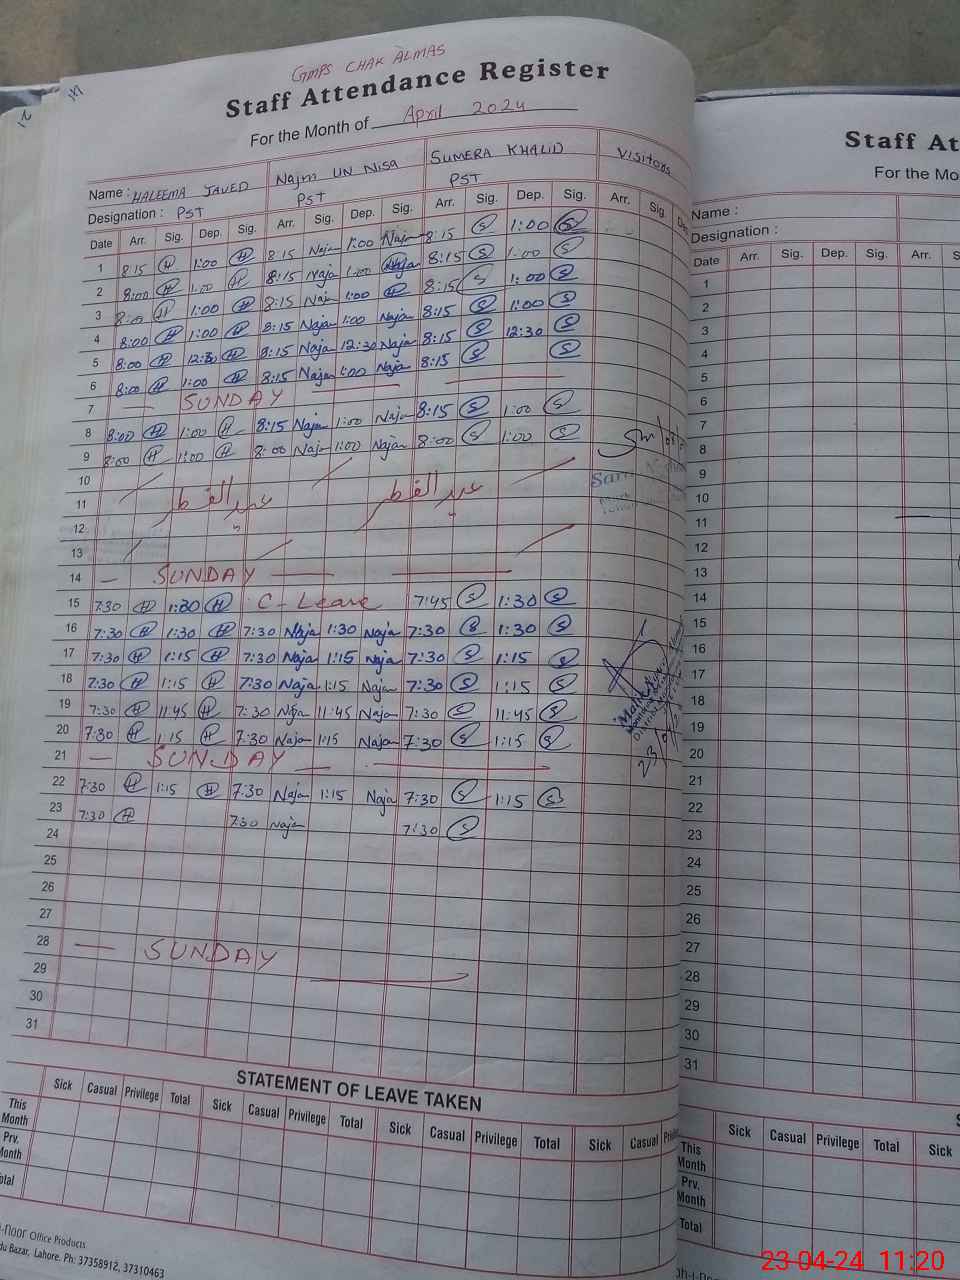 GMPS CHAK ALMAS
Staff Attendance Register
For the Month of April 2024
Name : HALEEMA JAVED Najm UN NISA SUMERA KHALID Visitors
Designation : PST PST PST
Date Arr. Sig. Dep. Sig. Arr. Sig. Dep. Sig. Arr. Sig. Dep. Sig. Arr. Sig.
1 8:15 H 1:00 H 8:15 Najm 1:00 Najm 8:15 S 1:00 S
2 8:00 H 1:00 H 8:15 Najm 1:00 Najm 8:15 S 1:00 S
3 8:00 H 1:00 H 8:15 Najm 1:00 8:15 S 1:00 S
4 8:00 H 1:00 H 8:15 Najm 1:00 Najm 8:15 S 1:00 S
5 8:00 H 12:30 H 8:15 Najm 12:30 Najm 8:15 S 12:30 S
6 8:00 H 1:00 H 8:15 Najm 1:00 Najm 8:15 S S
7 — SUNDAY —
8 8:00 H 1:00 H 8:15 Najm 1:00 Najm 8:15 S 1:00 S
9 8:00 H 1:00 H 8:00 Najm 1:00 Najm 8:00 S 1:00 S
10
11 عید الفطر عید الفطر
12
13
14 — SUNDAY —
15 7:30 H 1:30 H C-Leave 7:45 S 1:30 S
16 7:30 H 1:30 H 7:30 Najm 1:30 Najm 7:30 S 1:30 S
17 7:30 H 1:15 H 7:30 Najm 1:15 Najm 7:30 S 1:15 S
18 7:30 H 1:15 H 7:30 Najm 1:15 Najm 7:30 S 1:15 S
19 7:30 H 11:45 H 7:30 Najm 11:45 Najm 7:30 S 11:45 S
20 7:30 H 1:15 H 7:30 Najm 1:15 Najm 7:30 S 1:15 S
21 — SUNDAY —
22 7:30 H 1:15 H 7:30 Najm 1:15 Najm 7:30 S 1:15 S
23 7:30 H 7:30 Najm 7:30 S
24
25
26
27
28 — SUNDAY
29
30
31
STATEMENT OF LEAVE TAKEN
Sick Casual Privilege Total Sick Casual Privilege Total Sick Casual Privilege Total Sick Casual
This Month
Prv.
Office Products
Bazar, Lahore. Ph: 37358912, 37310463
Staff
For the
Name :
Designation :
Date Arr. Sig. Dep. Sig. Arr.
1
2
3
4
5
6
7
8
9
10
11
12
13
14
15
16
17
18
19
20
21
22
23
24
25
26
27
28
29
30
31
Sick Casual Privilege Total Sick
This Month
Prv. Month
Total
23-04-24 11:20